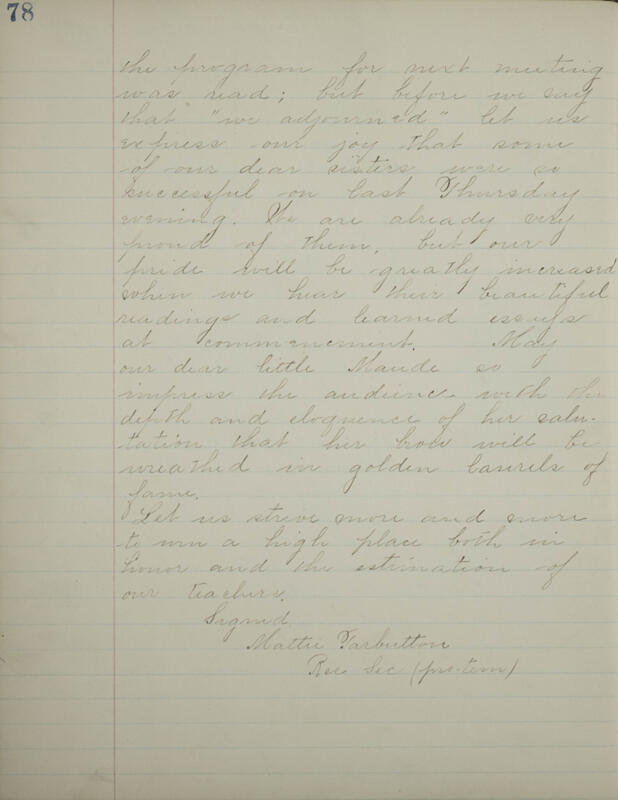 78
the program for next meeting
was read; but before we say
that "we adjourned" let us
express our joy that some
of our dear sisters were so
successful on last Thursday
evening. We are already very
proud of them, but our
pride will be greatly increased
when we hear their beautiful
readings and learned essays
at commencement. May
our dear little Maude so
impress the audience with the
depth and eloquence of her salu-
tation that her brow will be
wreathed in golden laurels of
fame.
Let us strive more and more
to win a high place both in
honor and the estimation of
our teachers.
Signed
Mattie Tarbutton
Rec Sec (pro-tem)